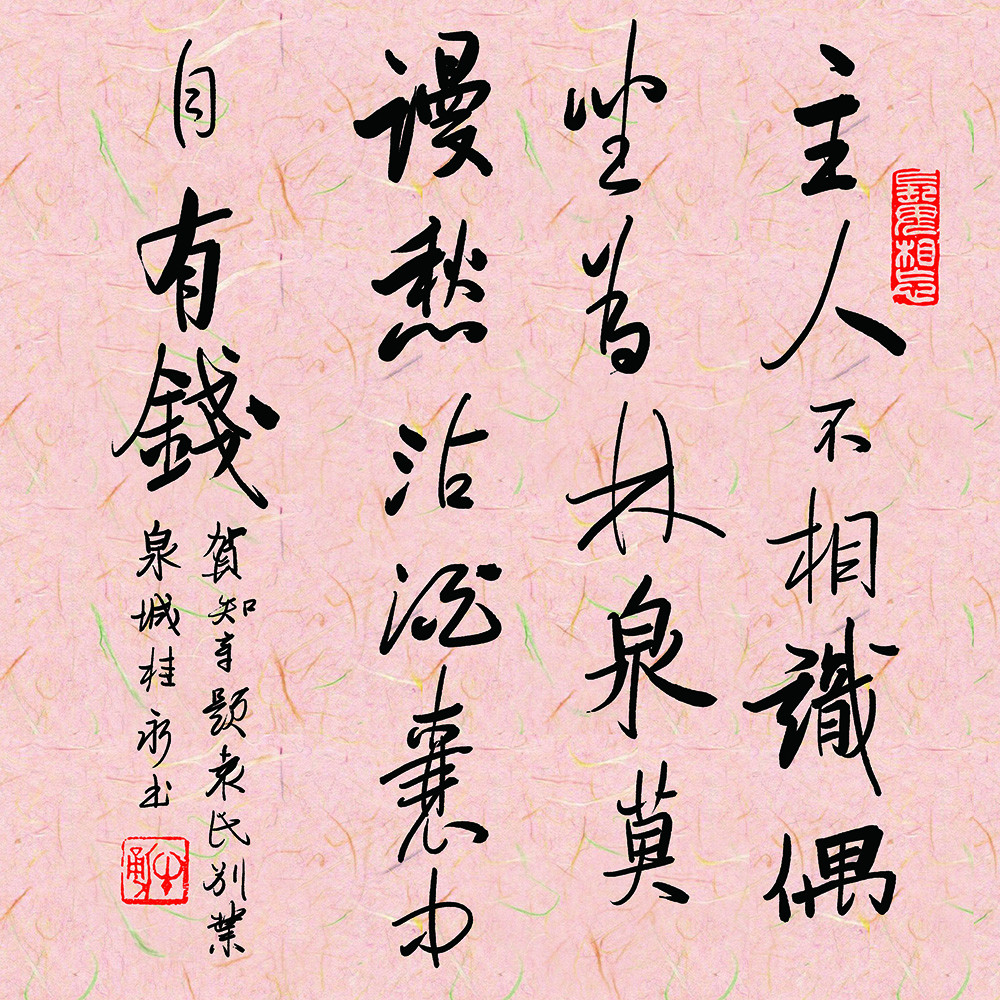 主人不相識偶
坐為林泉莫
謾愁沽酒囊中
自有錢
賀知章題袁氏別業
泉城桂永书